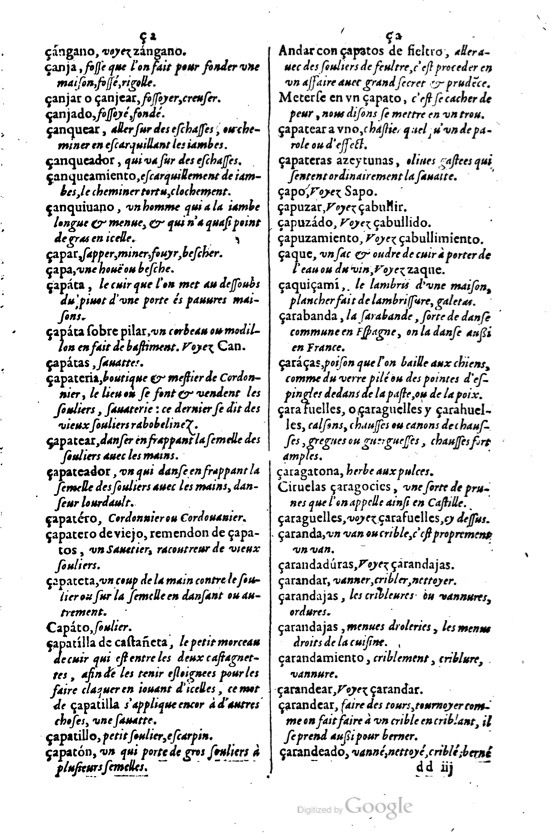 ça
çángano, voyez zángano.
çanja, fosse que l'on fait pour fonder vne
maison, fossé, rigolle.
çanjar o çanjear, fossoyer, creuser.
çanjado, fossoyé, fondé.
çanquear, aller sur des eschasses, ou che-
miner en escarquillant les iambes.
çanqueador, qui va sur des eschasses.
çanqueamiento, escarquillement de iam-
bes, le cheminer tortu, clochement.
çanquiuano, vn homme qui a la iambe
longue & menue, & qui n'a quasi point
de gras en icelle.
çapar, sapper, miner, fouyr, bescher.
çapa, vne houë ou besche.
çapáta, le cuir que l'on met au dessoubs
du pivot d'vne porte és pauures mai-
sons.
çapáta sobre pilar, vn corbeau ou modil-
lon en fait de bastiment. Voyez Can.
çapátas, sauattes.
çapatería, boutique & mestier de Cordon-
nier, le lieu où se font & vendent les
souliers, sauaterie: ce dernier se dit des
vieux souliers rabobelinez.
çapatear, danser en frappant la semelle des
souliers auec les mains.
çapateador, vn qui danse en frappant la
semelle des souliers auec les mains, dan-
seur lourdault.
çapatéro, Cordonnier ou Cordouanier.
çapatero de viejo, remendon de çapa-
tos, vn Sauetier, racoutreur de vieux
souliers.
çapateta, vn coup de la main contre le sou-
lier ou sur la semelle en dansant ou au-
trement.
Capáto, soulier.
çapatílla de castañeta, le petit morceau
de cuir qui est entre les deux castagnet-
tes, afin de les tenir esloignees pour les
faire claquer en iouant d'icelles, ce mot
de çapatilla s'applique encor à d'autres
choses, vne sauatte.
çapatillo, petit soulier, escarpin.
çapatón, vn qui porte de gros souliers à
plusieurs semelles.
ça
Andar con çapatos de fieltro, aller a-
uec des souliers de feultre, c'est proceder en
vn affaire auec grand secret & prudẽce.
Meterse en vn çapato, c'est se cacher de
peur, nous disons se mettre en vn trou.
çapatear a vno, chastier quelqu'vn de pa-
role ou d'effect.
çapateras azeytunas, oliues gastees qui
sentent ordinairement la sauatte.
çapo, Voyez Sapo.
çapuzar, Voyez çabullir.
çapuzádo, Voyez çabullido.
çapuzamiento, Voyez çabullimiento.
çaque, vn sac & oudre de cuir à porter de
l'eau ou du vin, Voyez zaque.
çaquiçami, le lambris d'vne maison,
plancher fait de lambrissure, galetas.
çarabanda, la sarabande, sorte de danse
commune en Espagne, on la danse aussi
en France.
çaráças, poison que l'on baille aux chiens,
comme du verre pilé ou des pointes d'es-
pingles dedans de la paste, ou de la poix.
çara fuelles, o çaraguelles y çarahuel-
les, calsons, chausses ou canons de chaus-
ses, gregues ou guerguesses, chausses fort
amples.
çaragatona, herbe aux pulces.
Ciruelas çaragocies, vne sorte de pru-
nes que l'on appelle ainsi en Castille.
çaraguelles, voyez çarafuelles, & dessus.
çaranda, vn van ou crible, c'est proprement
vn van.
çarandadúras, Voyez çarandajas.
çarandar, vanner, cribler, nettoyer.
çarandajas, les cribleures ou vannures,
ordures.
çarandajas, menues droleries, les menus
droits de la cuisine.
çarandamiento, criblement, criblure,
vannure.
çarandear, Voyez çarandar.
çarandear, faire des tours, tournoyer com-
me on fait faire à vn crible en criblant, il
se prend aussi pour berner.
çarandeado, vanné, nettoyé, criblé, berné
dd iij
Digitized by Google